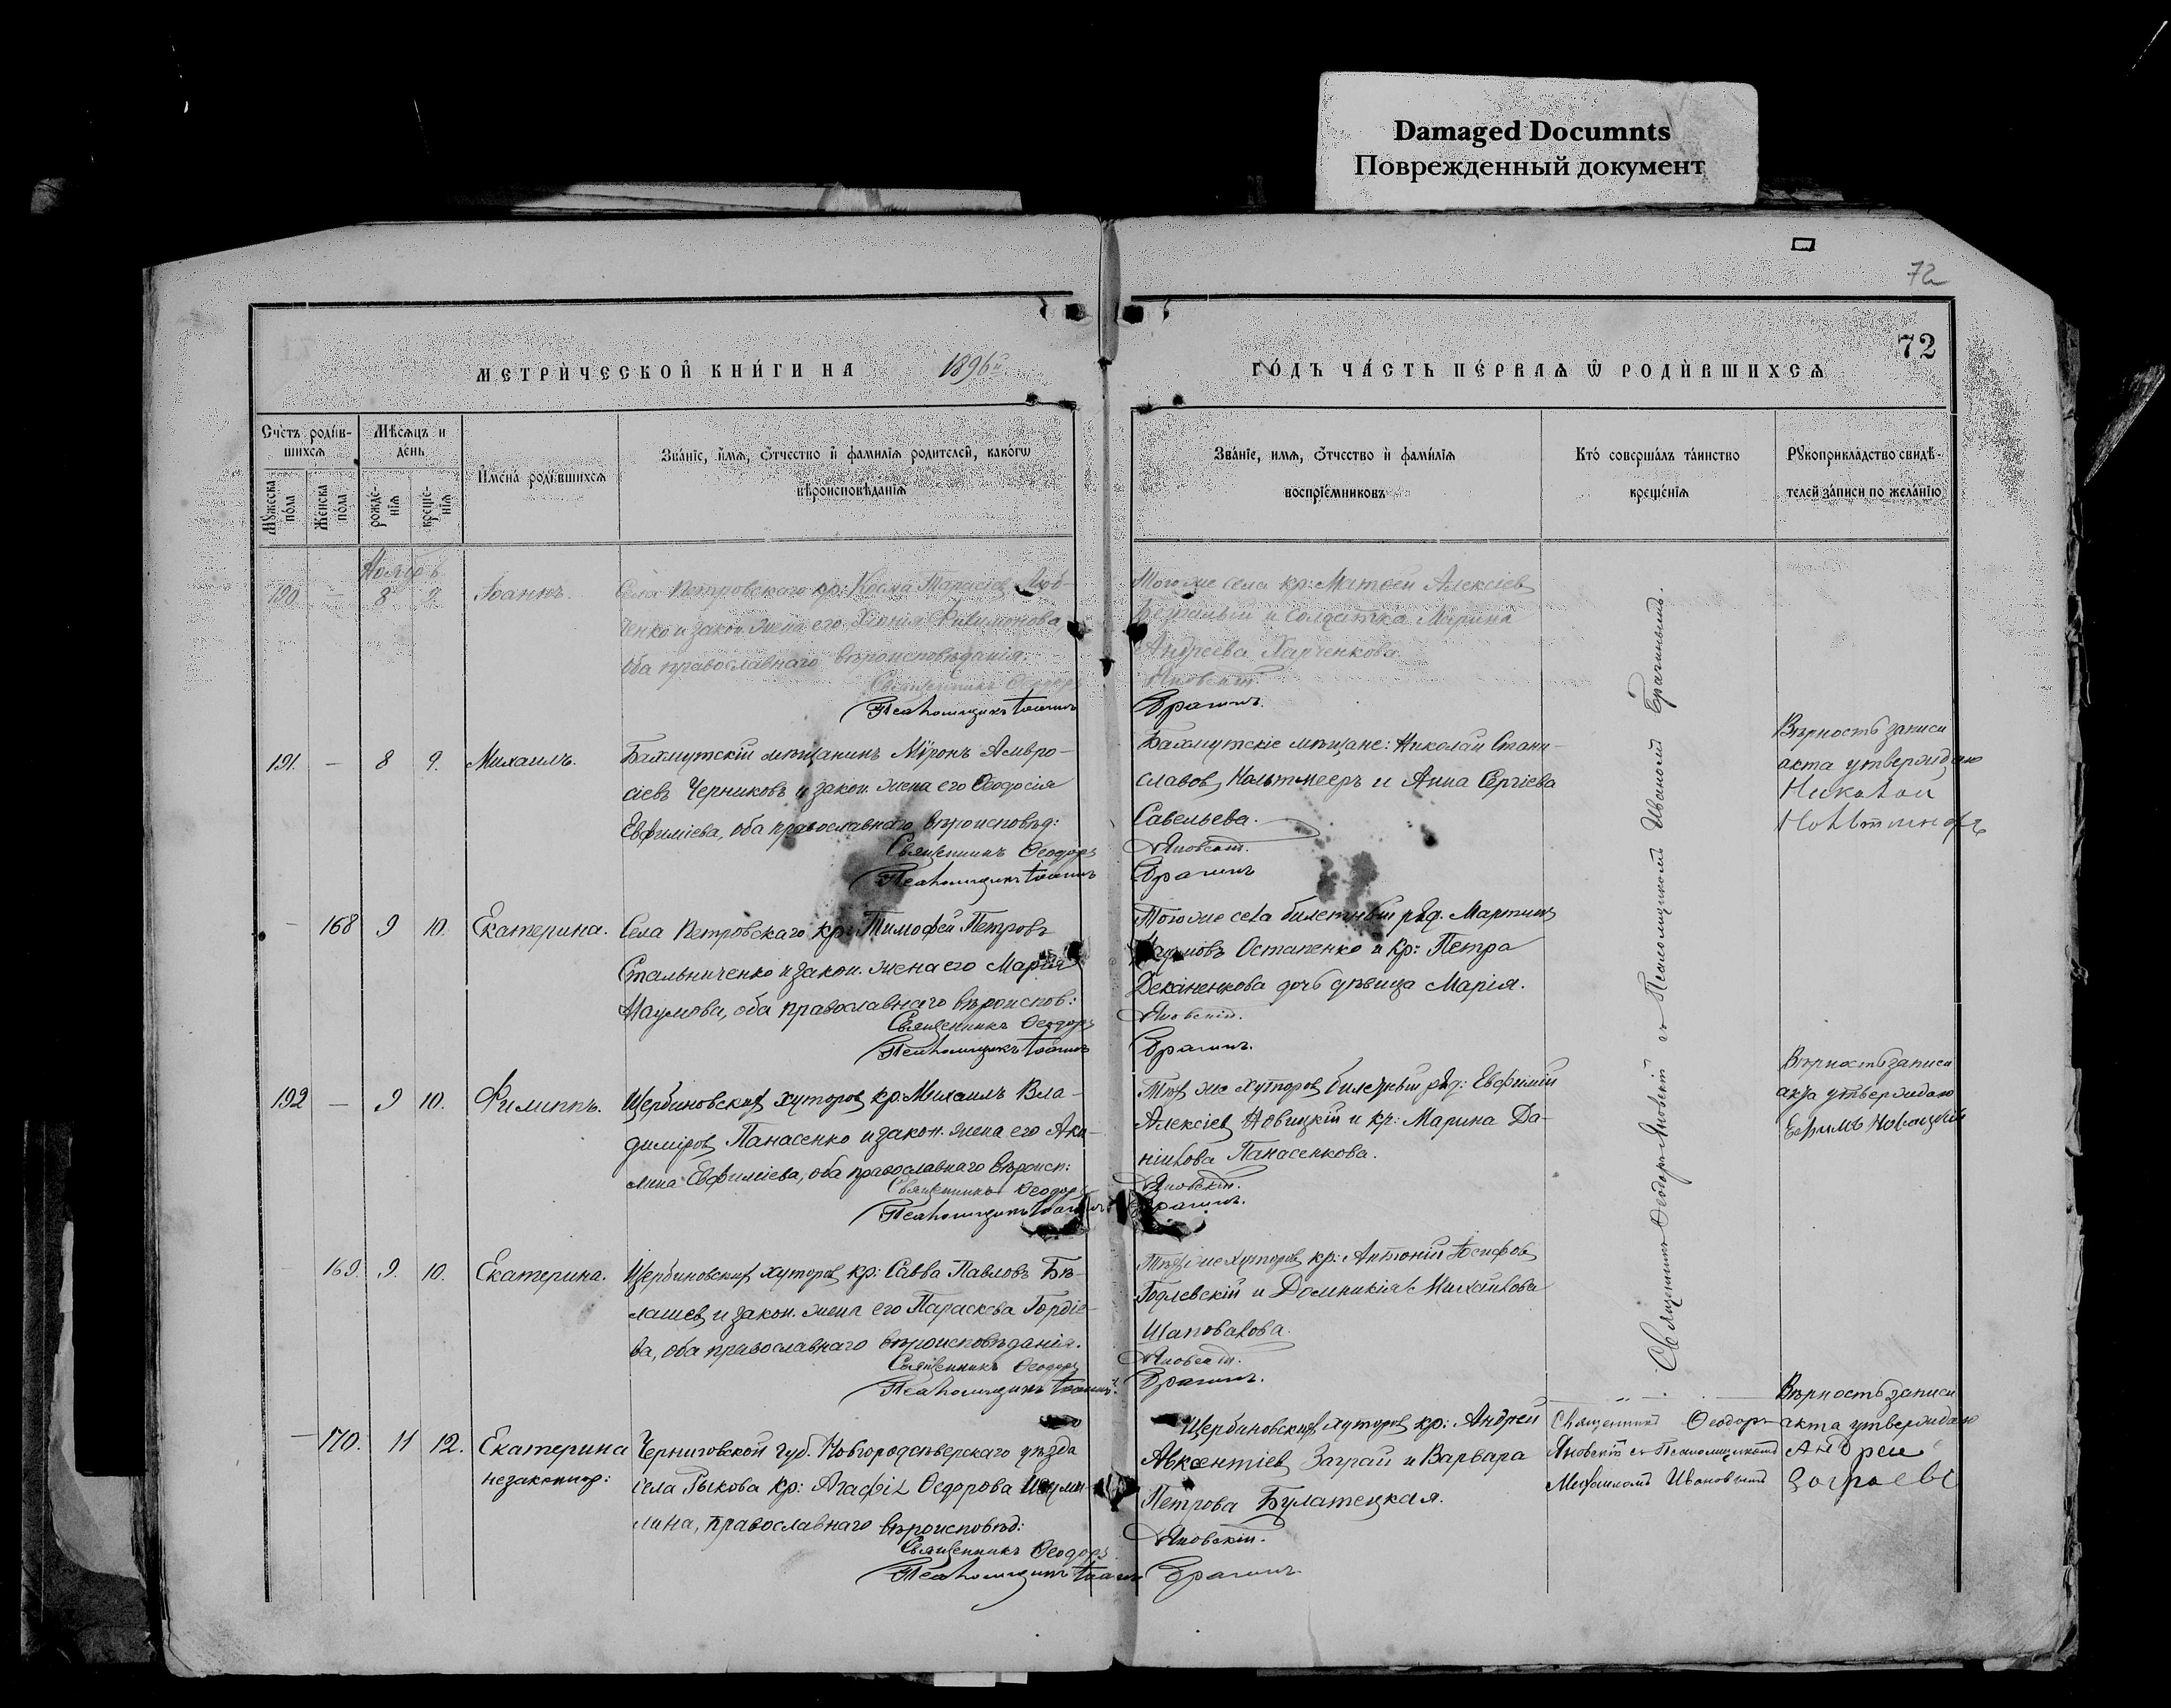 Damaged Documnts
Поврежденный документ
72
72
МЕТРИ́ЧЕСКОЙ КНИ́ГИ НА 1896й
ГО́ДЪ ЧА́СТЬ ПЕ́РВАѦ Ѿ РОДИ́ВШИХСѦ
Сче́тъ роди́в-
шихсѧ
Мꙋ́жеска по́ла
Же́нска по́ла
Мѣ́сѧцъ и
де́нь
рожде́-
нїѧ
креще́-
нїѧ
И҆мена̀ роди́вшихсѧ
Зва́нїе, и҆́мѧ, ѻ҆́тчество и҆ фами́лїѧ роди́телей, како́гѡ
вѣроисповѣ́данїѧ
Зва́нїе, и҆́мѧ, ѻ҆́тчество и҆ фами́лїѧ
воспрїе́мниковъ
Кто̀ соверша́лъ та́инство
креще́нїѧ
Рꙋкоприкла́дство свидѣ́-
телей за́писи по жела́нїю
Ноябрь
190 — 8 9. Іоаннъ.
Села Петровскаго кр: Косма Тарасіев Люб-
ченко и закон. жена его Хіонія Филимонова
оба православнаго вѣроисповѣданія.
Священникъ Ѳеодоръ
Псаломщикъ Іоаннъ
Того же села кр: Матѳей Алексіев
и солдатка Марина
Андреева Харченкова.
Яновскій.
Брагинъ.
191. — 8 9. Михаилъ.
Бахмутскій мѣщанинъ Мѵронъ Амвро-
сіевъ Черниковъ и закон. жена его Ѳеодосія
Евфиміева, оба православнаго вѣроисповѣд:
Священникъ Ѳеодоръ
Псаломщикъ Іоаннъ
Бахмутскіе мѣщане: Николай Стани-
славов и Анна Сергіева
Савельева.
Яновскій.
Брагинъ
Вѣрность записи
акта утверждаю
Николай
— 168 9 10. Екатерина.
Села Петровскаго кр: Тимофей Петровъ
Стальниченко и закон. жена его Марія
Наумова, оба православнаго вѣроиспов:
Священникъ Ѳеодоръ
Псаломщикъ Іоаннъ
Того же села билетный ряд. Мартинъ
Наумовъ Остапенко и кр: Петра
Деканенкова дочь дѣвица Марія.
Яновскій.
Брагинъ.
192 — 9 10. Филиппъ.
Щербиновских хуторов кр: Михаилъ Вла-
диміров Панасенко и закон. жена его Аки-
лина Евфиміева, оба православнаго вѣроисп:
Священникъ Ѳеодоръ
Псаломщикъ Іоаннъ
Тѣх же хуторов билетный ряд: Евфимій
Алексіев Новицкій и кр: Марина Да-
ніилова Панасенкова.
Яновскій.
Брагинъ.
Вѣрность записи
акта утверждаю
Ефимъ Новицкій
169. 9. 10. Екатерина.
Щербиновских хуторов кр: Савва Павловъ Бѣ-
лашев и закон. жена его Параскева Гордіе-
ва, оба православнаго вѣроисповѣданія.
Священникъ Ѳеодоръ
Псаломщикъ Іоаннъ
Тѣх же хуторов кр: Антоній Іосифов
Годлевскій и Домникія Михайлова
Шаповалова.
Яновскій.
Брагинъ.
Священникъ Ѳеодоръ Яновскій съ Псаломщикомъ Иваномъ Брагинымъ.
— 170. 11 12. Екатерина
незаконнор:
Черниговской губ. Новгородсѣверскаго уѣзда
села Рыкова кр: Агафія Ѳедорова
лина, православнаго вѣроисповѣд:
Священникъ Ѳеодоръ
Псаломщикъ Іоаннъ
Щербиновских хуторов кр: Андрей
Авксентіев Заграй и Варвара
Петрова Булатецкая.
Яновскій.
Брагинъ
— „ —
Священникъ Ѳеодоръ
Яновскій съ Псаломщикомъ
Вѣрность записи
акта утверждаю
Андрей